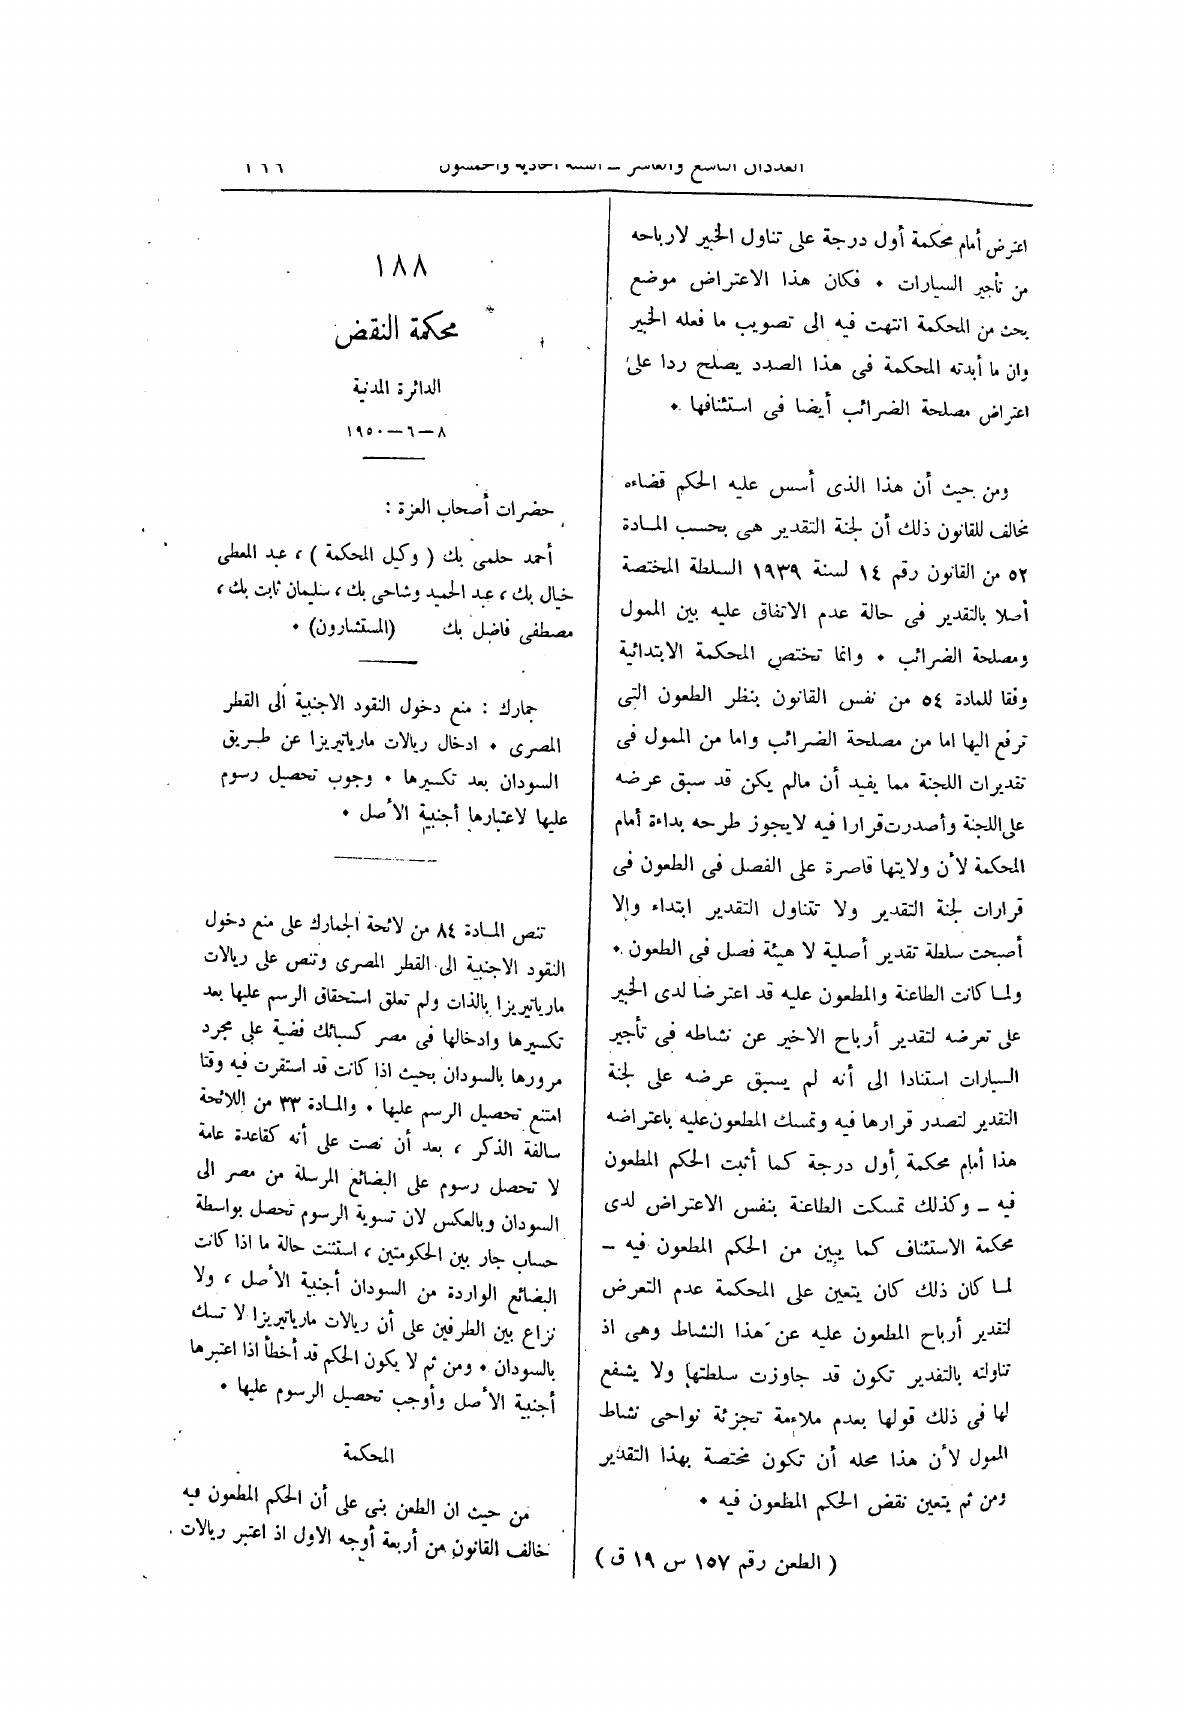 العددان التاسع والعاشر – السنة الحادية والخمسون
اعترض أمام محكمة أول درجة على تناول الخبير لارباحه
من تأجير السيارات • فكان هذا الاعتراض موضع
بحث من المحكمة انتهت فيه الى تصويب ما فعله الخبير
وان ما أبدته المحكمة فى هذا الصدد يصلح ردا على
اعتراض مصلحة الضرائب أيضا فى استئنافها •
ومن حيث أن هذا الذى أسس عليه الحكم قضاءه
مخالف للقانون ذلك أن لجنة التقدير هى بحسب المادة
٥٢ من القانون رقم ١٤ لسنة ١٩٣٩ السلطة المختصة
أصلا بالتقدير فى حالة عدم الاتفاق عليه بين الممول
ومصلحة الضرائب • وانما تختص المحكمة الابتدائية
وفقا للمادة ٥٤ من نفس القانون بنظر الطعون التى
ترفع اليها اما من مصلحة الضرائب واما من الممول فى
تقديرات اللجنة مما يفيد أن مالم يكن قد سبق عرضه
على اللجنة وأصدرت قرارا فيه لايجوز طرحه بداءة أمام
المحكمة لأن ولايتها قاصرة على الفصل فى الطعون فى
قرارات لجنة التقدير ولا تتناول التقدير ابتداء والا
أصبحت سلطة تقدير أصلية لا هيئة فصل فى الطعون •
ولما كانت الطاعنة والمطعون عليه قد اعترضا لدى الخبير
على تعرضه لتقدير أرباح الاخير عن نشاطه فى تأجير
السيارات استنادا الى أنه لم يسبق عرضه على لجنة
التقدير لتصدر قرارها فيه وتمسك المطعون عليه باعتراضه
هذا أمام محكمة أول درجة كما أثبت الحكم المطعون
فيه – وكذلك تمسكت الطاعنة بنفس الاعتراض لدى
محكمة الاستئناف كما يبين من الحكم المطعون فيه –
لما كان ذلك كان يتعين على المحكمة عدم التعرض
لتقدير أرباح المطعون عليه عن هذا النشاط وهى اذ
تناولته بالتقدير تكون قد جاوزت سلطتها ولا يشفع
لها فى ذلك قولها بعدم ملاءمة تجزئة نواحى نشاط
الممول لأن هذا محله أن تكون مختصة بهذا التقدير
ومن ثم يتعين نقض الحكم المطعون فيه •
( الطعن رقم ١٥٧ س ١٩ ق )
١٨٨
محكمة النقض
الدائرة المدنية
٨–٦–١٩٥٠
حضرات أصحاب العزة :
أحمد حلمى بك ( وكيل المحكمة ) ، عبد المعطى
خيال بك ، عبد الحميد وشاحى بك ، سليمان ثابت بك ،
مصطفى فاضل بك (المستشارون) •
جمارك : منع دخول النقود الاجنبية الى القطر
المصرى • ادخال ريالات مارياتيريزا عن طريق
السودان بعد تكسيرها • وجوب تحصيل رسوم
عليها لاعتبارها أجنبية الأصل •
تنص المادة ٨٤ من لائحة الجمارك على منع دخول
النقود الاجنبية الى القطر المصرى وتنص على ريالات
مارياتيريزا بالذات ولم تعلق استحقاق الرسم عليها بعد
تكسيرها وادخالها فى مصر كسبائك فضية على مجرد
مرورها بالسودان بحيث اذا كانت قد استقرت فيه وقتا
امتنع تحصيل الرسم عليها • والمادة ٣٣ من اللائحة
سالفة الذكر ، بعد أن نصت على أنه كقاعدة عامة
لا تحصل رسوم على البضائع المرسلة من مصر الى
السودان وبالعكس لان تسوية الرسوم تحصل بواسطة
حساب جار بين الحكومتين ، استثنت حالة ما اذا كانت
البضائع الواردة من السودان أجنبية الأصل ، ولا
نزاع بين الطرفين على أن ريالات مارياتيريزا لا تسك
بالسودان • ومن ثم لا يكون الحكم قد أخطأ اذا اعتبرها
أجنبية الأصل وأوجب تحصيل الرسوم عليها •
المحكمة
من حيث ان الطعن بنى على أن الحكم المطعون فيه
خالف القانون من أربعة أوجه الاول اذ اعتبر ريالات